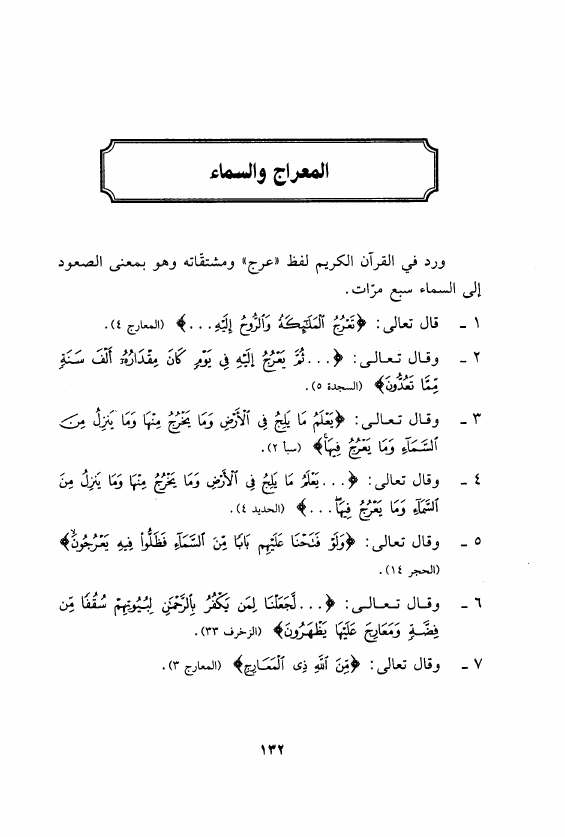 المعراج والسماء
ورد في القرآن الكريم لفظ «عرج» ومشتقّاته وهو بمعنى الصعود
إلى السماء سبع مرّات.
١ ـ قال تعالى: ﴿تَعْرُجُ الْمَلَـٰٓئِكَةُ وَالرُّوحُ إِلَيْهِ...﴾ (المعارج ٤).
٢ ـ وقال تعالى: ﴿...ثُمَّ يَعْرُجُ إِلَيْهِ فِى يَوْمٍ كَانَ مِقْدَارُهُۥٓ أَلْفَ سَنَةٍ
مِّمَّا تَعُدُّونَ﴾ (السجدة ٥).
٣ ـ وقال تعالى: ﴿يَعْلَمُ مَا يَلِجُ فِى الْأَرْضِ وَمَا يَخْرُجُ مِنْهَا وَمَا يَنزِلُ مِنَ
السَّمَآءِ وَمَا يَعْرُجُ فِيهَا﴾ (سبأ ٢).
٤ ـ وقال تعالى: ﴿...يَعْلَمُ مَا يَلِجُ فِى الْأَرْضِ وَمَا يَخْرُجُ مِنْهَا وَمَا يَنزِلُ مِنَ
السَّمَآءِ وَمَا يَعْرُجُ فِيهَا...﴾ (الحديد ٤).
٥ ـ وقال تعالى: ﴿وَلَوْ فَتَحْنَا عَلَيْهِم بَابًا مِّنَ السَّمَآءِ فَظَلُّوا۟ فِيهِ يَعْرُجُونَ﴾
(الحجر ١٤).
٦ ـ وقال تعالى: ﴿...لَّجَعَلْنَا لِمَن يَكْفُرُ بِالرَّحْمَـٰنِ لِبُيُوتِهِمْ سُقُفًا مِّن
فِضَّةٍ وَمَعَارِجَ عَلَيْهَا يَظْهَرُونَ﴾ (الزخرف ٣٣).
٧ ـ وقال تعالى: ﴿مِّنَ اللَّهِ ذِى الْمَعَارِجِ﴾ (المعارج ٣).
١٣٢